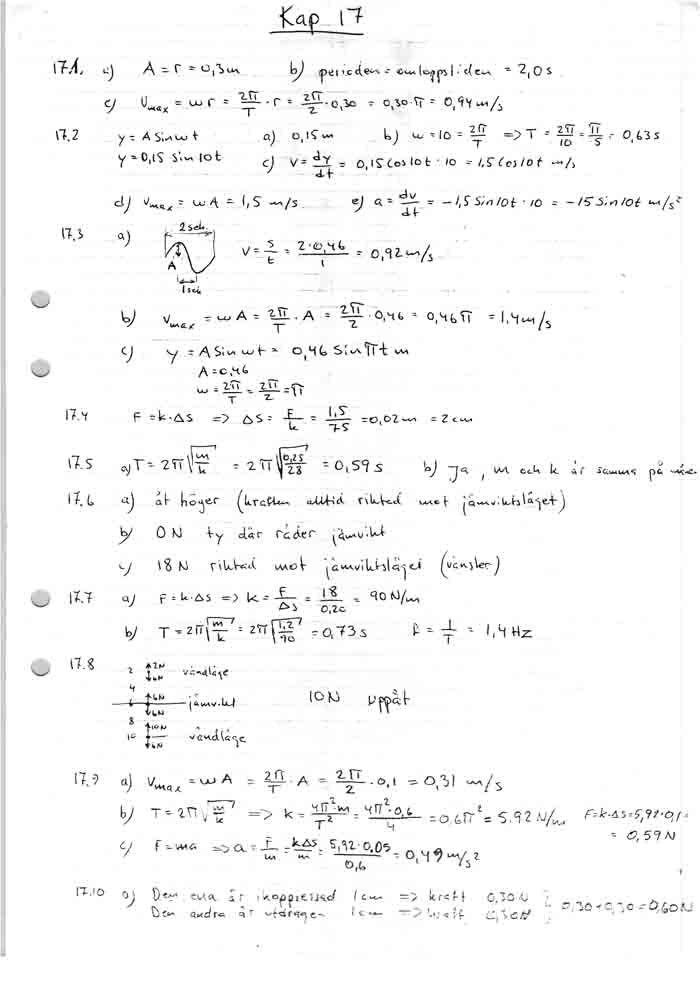 Kap 17
17.1. a) A = r = 0,3m b) perioden = omloppstiden = 2,0s
c) Vmax = ωr = 2π/T · r = 2π/2 · 0,30 = 0,30·π = 0,94 m/s
17.2 y = A sin ωt a) 0,15m b) ω = 10 = 2π/T => T = 2π/10 = π/5 = 0,63s
y = 0,15 sin 10t c) v = dy/dt = 0,15 cos 10t · 10 = 1,5 cos 10t m/s
d) Vmax = ωA = 1,5 m/s e) a = dv/dt = -1,5 sin 10t · 10 = -15 sin 10t m/s²
17.3 a) 2 sek A 1 sek v = s/t = 2·0,46/1 = 0,92 m/s
b) Vmax = ωA = 2π/T · A = 2π/2 · 0,46 = 0,46π = 1,4 m/s
c) y = A sin ωt = 0,46 sin πt m
A = 0,46
ω = 2π/T = 2π/2 = π
17.4 F = k·Δs => Δs = F/k = 1,5/75 = 0,02m = 2cm
17.5 a) T = 2π√(m/k) = 2π√(0,25/28) = 0,59s b) Ja, m och k är samma på
17.6 a) åt höger (kraften alltid riktad mot jämviktsläget)
b) 0N ty där råder jämvikt
c) 18N riktad mot jämviktsläget (vänster)
17.7 a) F = k·Δs => k = F/Δs = 18/0,20 = 90 N/m
b) T = 2π√(m/k) = 2π√(1,2/90) = 0,73s f = 1/T = 1,4 Hz
17.8 2 2N 6N vändläge
4
6 6N 6N jämvikt 10N uppåt
8 10N
10 6N vändläge
17.9 a) Vmax = ωA = 2π/T · A = 2π/2 · 0,1 = 0,31 m/s
b) T = 2π√(m/k) => k = 4π²m/T² = 4π²·0,6/4 = 0,6π² = 5.92 N/m F = k·Δs = 5,92·0,1 =
= 0,59N
c) F = ma => a = F/m = kΔs/m = 5,92·0,05/0,6 = 0,49 m/s²
17.10 a) Den ena är ihoppressad 1cm => kraft 0,30N
Den andra är utdragen 1cm => kraft 0,30N 0,30+0,30 = 0,60N